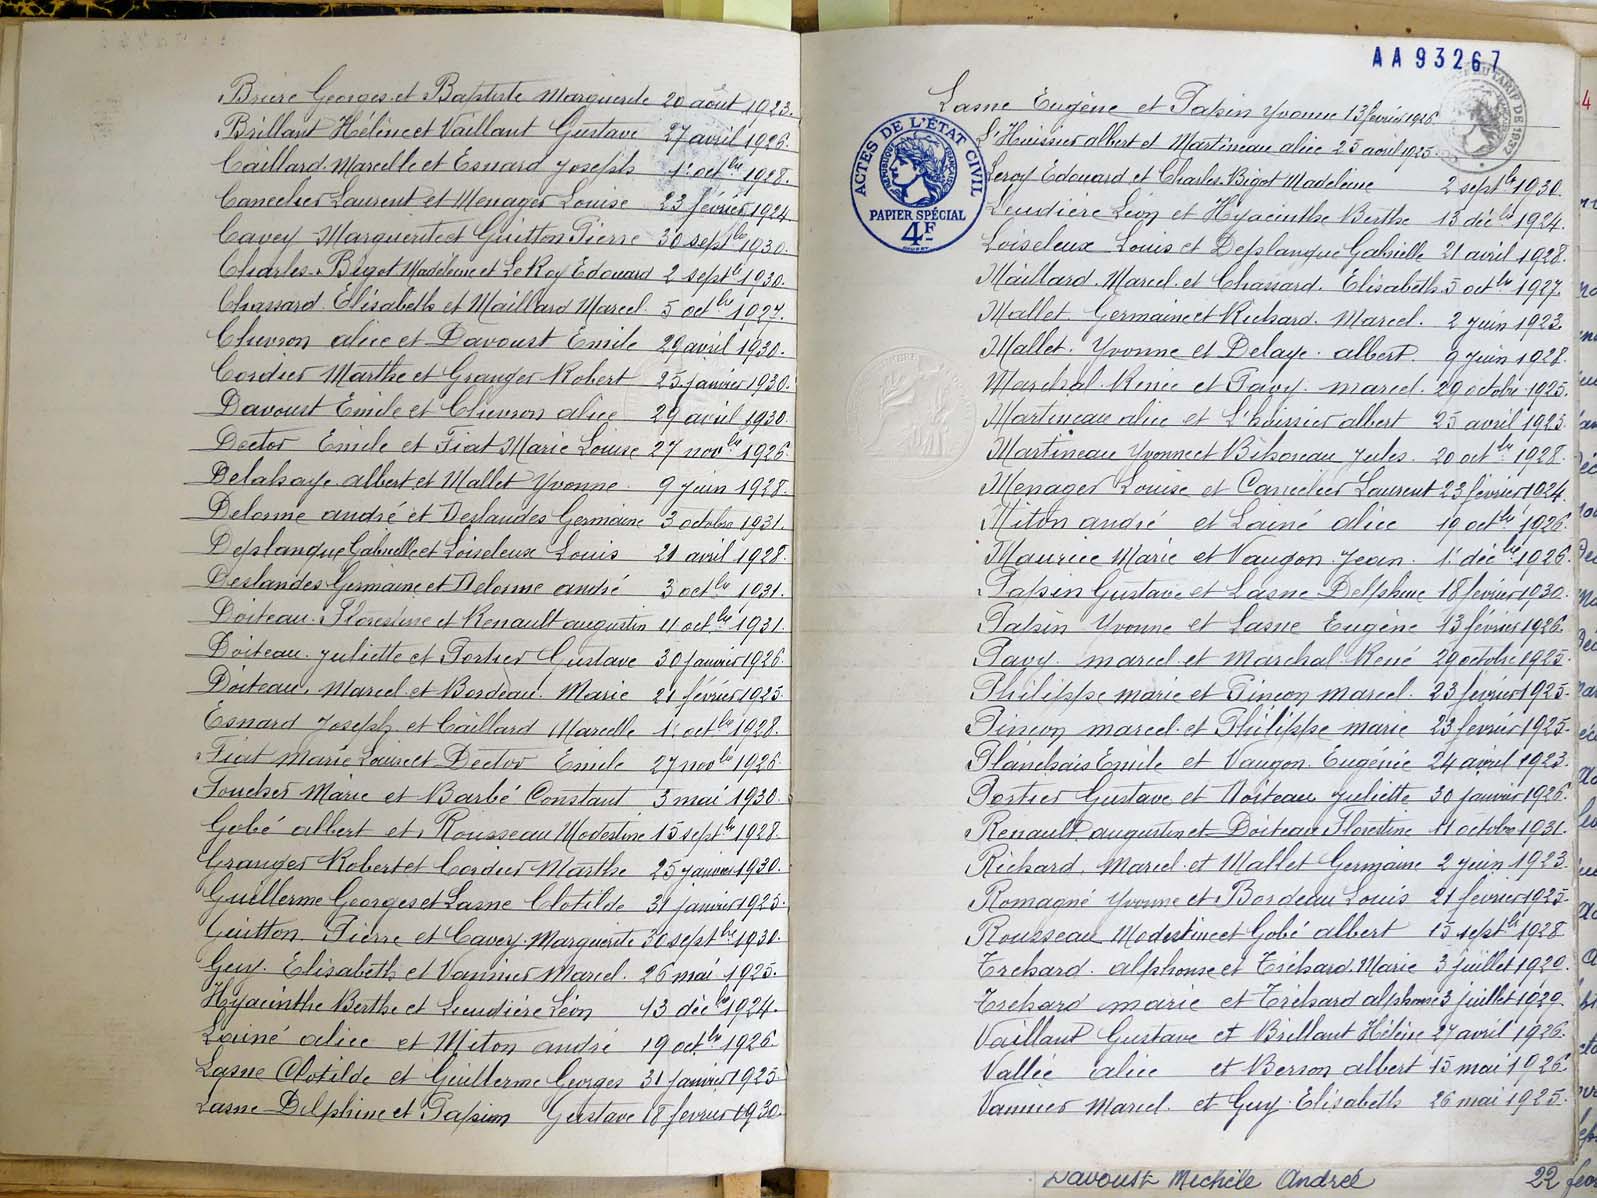 Brière Georges et Baptiste Marguerite 20 août 1923.
Brillant Hélène et Vaillant Gustave 27 avril 1926.
Caillard Marcelle et Esnard Joseph 1er octbre 1928.
Cancelier Laurent et Menager Louise 23 février 1924
Cavey Marguerite et Guitton Pierre 30 septbre 1930.
Charles-Bigot Madeleine et Le Roy Edouard 2 septbre 1930.
Chassard Elisabeth et Maillard Marcel. 5 octbre 1927.
Chevron alice et Davoust Emile 29 avril 1930.
Cordier Marthe et Granger Robert 25 janvier 1930.
Davoust Emile et Chevron alice 29 avril 1930.
Doctor Emile et Fiat Marie Louise 27 novbre 1926.
Delahaye albert et Mallet Yvonne. 9 juin 1928.
Delorme andré et Deslandes Germaine 3 octobre 1931.
Deplanque Gabrielle et Loiseleux Louis 21 avril 1928.
Deslandes Germaine et Delorme andré 3 octbre 1931.
Doiteau Florestine et Renault augustin 11 octbre 1931.
Doiteau Juliette et Portier Gustave 30 janvier 1926.
Doiteau, Marcel et Bordeau Marie 21 février 1925.
Esnard Joseph et Caillard Marcelle 1er octbre 1928.
Fiat Marie Louise et Doctor Emile 27 novbre 1926.
Foucher Marie et Barbé Constant 3 mai 1930.
Gobé albert et Rousseau Modestine 15 septbre 1928.
Granger Robert et Cordier Marthe 25 janvier 1930.
Guillerme Georges et Lasne Clotilde 31 janvier 1925.
Guitton Pierre et Cavey Marguerite 30 septbre 1930.
Guy. Elisabeth et Vannier Marcel. 26 mai 1925.
Hyacinthe Berthe et Leudière Léon 13 décbre 1924.
Lainé alice et Miton andré 19 octbre 1926.
Lasne Clotilde et Guillerme Georges 31 janvier 1925
Lasne Delphine et Papin Gustave 18 février 1930.
AA93267
Lasne Eugène et Papin Yvonne 13 février 1926
ACTES DE L'ÉTAT CIVIL
RÉPUBLIQUE FRANÇAISE
PAPIER SPÉCIAL
4F
L'Huissier albert et Martineau alice 25 avril 1925.
Leroy Edouard et Charles-Bigot Madeleine 2 septbre 1930.
Leudière Léon et Hyacinthe Berthe 13 décbre 1924.
Loiseleux Louis et Deplanque Gabrielle 21 avril 1928.
Maillard. Marcel et Chassard. Elisabeth 5 octbre 1927.
Mallet Germaine et Richard. Marcel. 2 juin 1923.
Mallet. Yvonne et Delaye. albert. 9 juin 1928.
Marchal. Renée et Pavy. marcel. 29 octobre 1925.
Martineau alice et L'huissier albert 25 avril 1925.
Martineau Yvonne et Bihoreau Jules. 20 octbre 1928.
Menager Louise et Cancelier Laurent 23 février 1924.
Miton andré et Lainé alice 19 octbre 1926.
Maurice Marie et Vaugon Jean. 1er décbre 1926.
Papin Gustave et Lasne Delphine 18 février 1930.
Papin Yvonne et Lasne Eugène 13 février 1926.
Pavy. marcel et Marchal René 29 octobre 1925.
Philippe marie et Pinçon marcel. 23 février 1925.
Pinçon marcel et Philippe marie 23 février 1925.
Planchais Emile et Vaugon Eugénie 24 avril 1923.
Portier Gustave et Doiteau Juliette 30 janvier 1926.
Renault augustin et Doiteau Florestine 11 octobre 1931.
Richard, Marcel et Mallet Germaine 2 juin 1923
Romagné Yvonne et Bordeau Louis 21 février 1925
Rousseau Modestine et Gobé albert 15 septbre 1928
Tréhard alphonse et Tréhard. Marie 3 juillet 1929.
Tréhard marie et Tréhard alphonse 3 juillet 1929.
Vaillant Gustave et Brillant Hélène 27 avril 1926.
Vallée alice et Berson albert 15 mai 1926
Vannier Marcel. et Guy Elisabeth 26 mai 1925.
4
Davoust Michelle Andrée 22